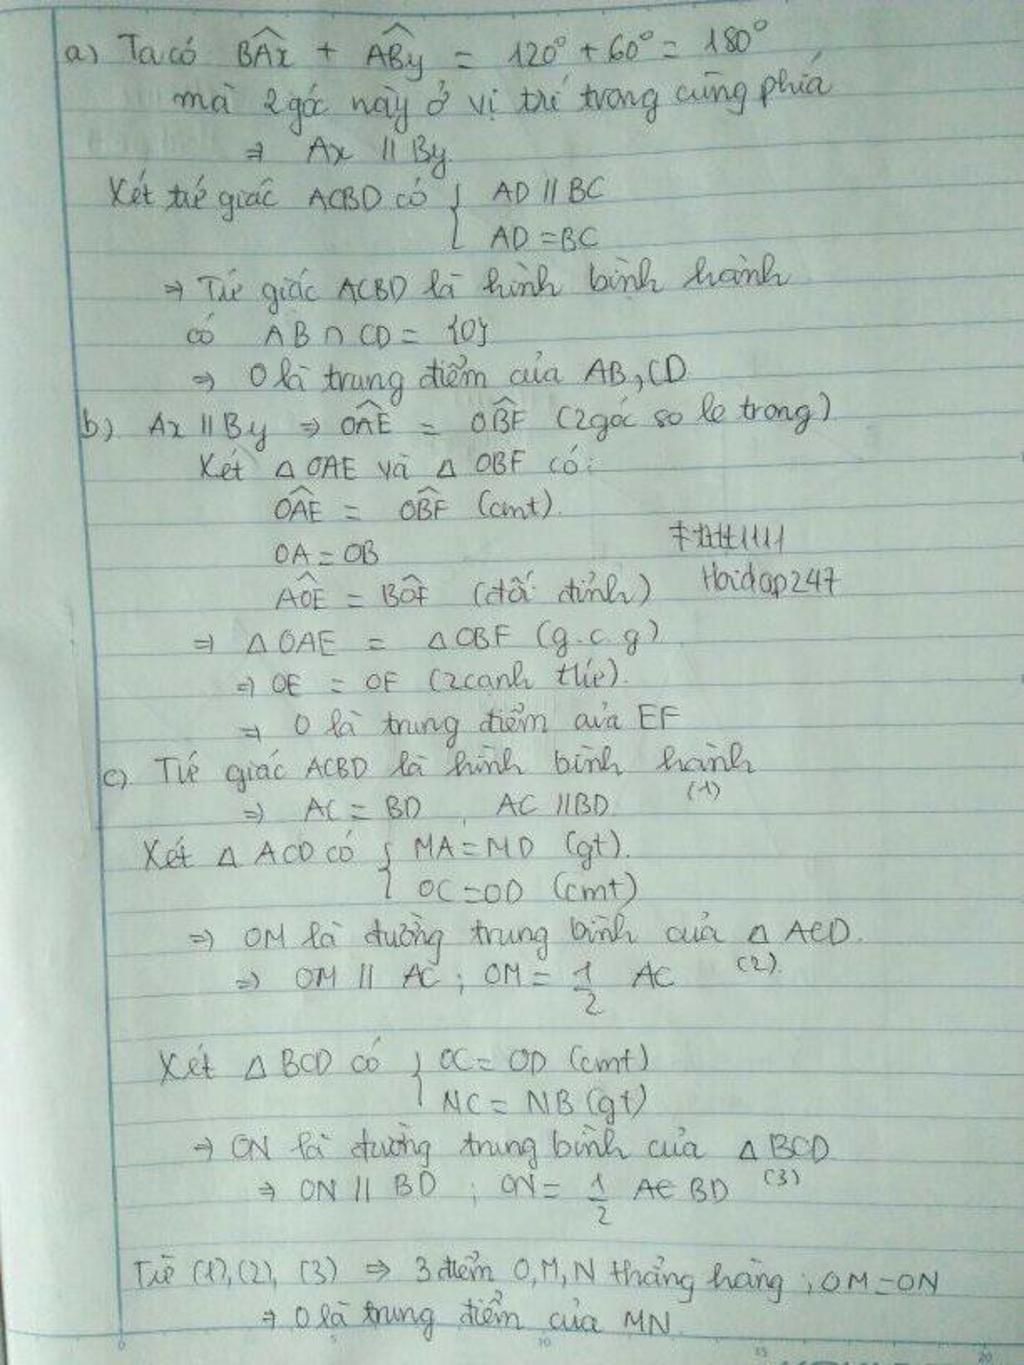 a) Ta có BAx + ABy = 120° + 60° = 180°
mà 2 góc này ở vị trí trong cùng phía
⇒ Ax // By
Xét tứ giác ACBD có { AD // BC
AD = BC
⇒ Tứ giác ACBD là hình bình hành
có AB ∩ CD = {O}
⇒ O là trung điểm của AB, CD
b) Ax // By ⇒ OAE = OBF (2 góc so le trong)
Xét △ OAE và △ OBF có:
OAE = OBF (cmt).
OA = OB
AOE = BOF (đối đỉnh)
Hoidap247
⇒ △ OAE = △ OBF (g.c.g)
⇒ OE = OF (2 cạnh t/ứ).
⇒ O là trung điểm của EF
c) Tứ giác ACBD là hình bình hành
⇒ AC = BD, AC // BD (1)
Xét △ ACD có { MA = MD (gt).
OC = OD (cmt)
⇒ OM là đường trung bình của △ ACD.
⇒ OM // AC ; OM = 1/2 AC (2).
Xét △ BCD có { OC = OD (cmt)
NC = NB (gt)
⇒ ON là đường trung bình của △ BCD
⇒ ON // BD ; ON = 1/2 BD (3)
Từ (1), (2), (3) ⇒ 3 điểm O, M, N thẳng hàng ; OM = ON
⇒ O là trung điểm của MN